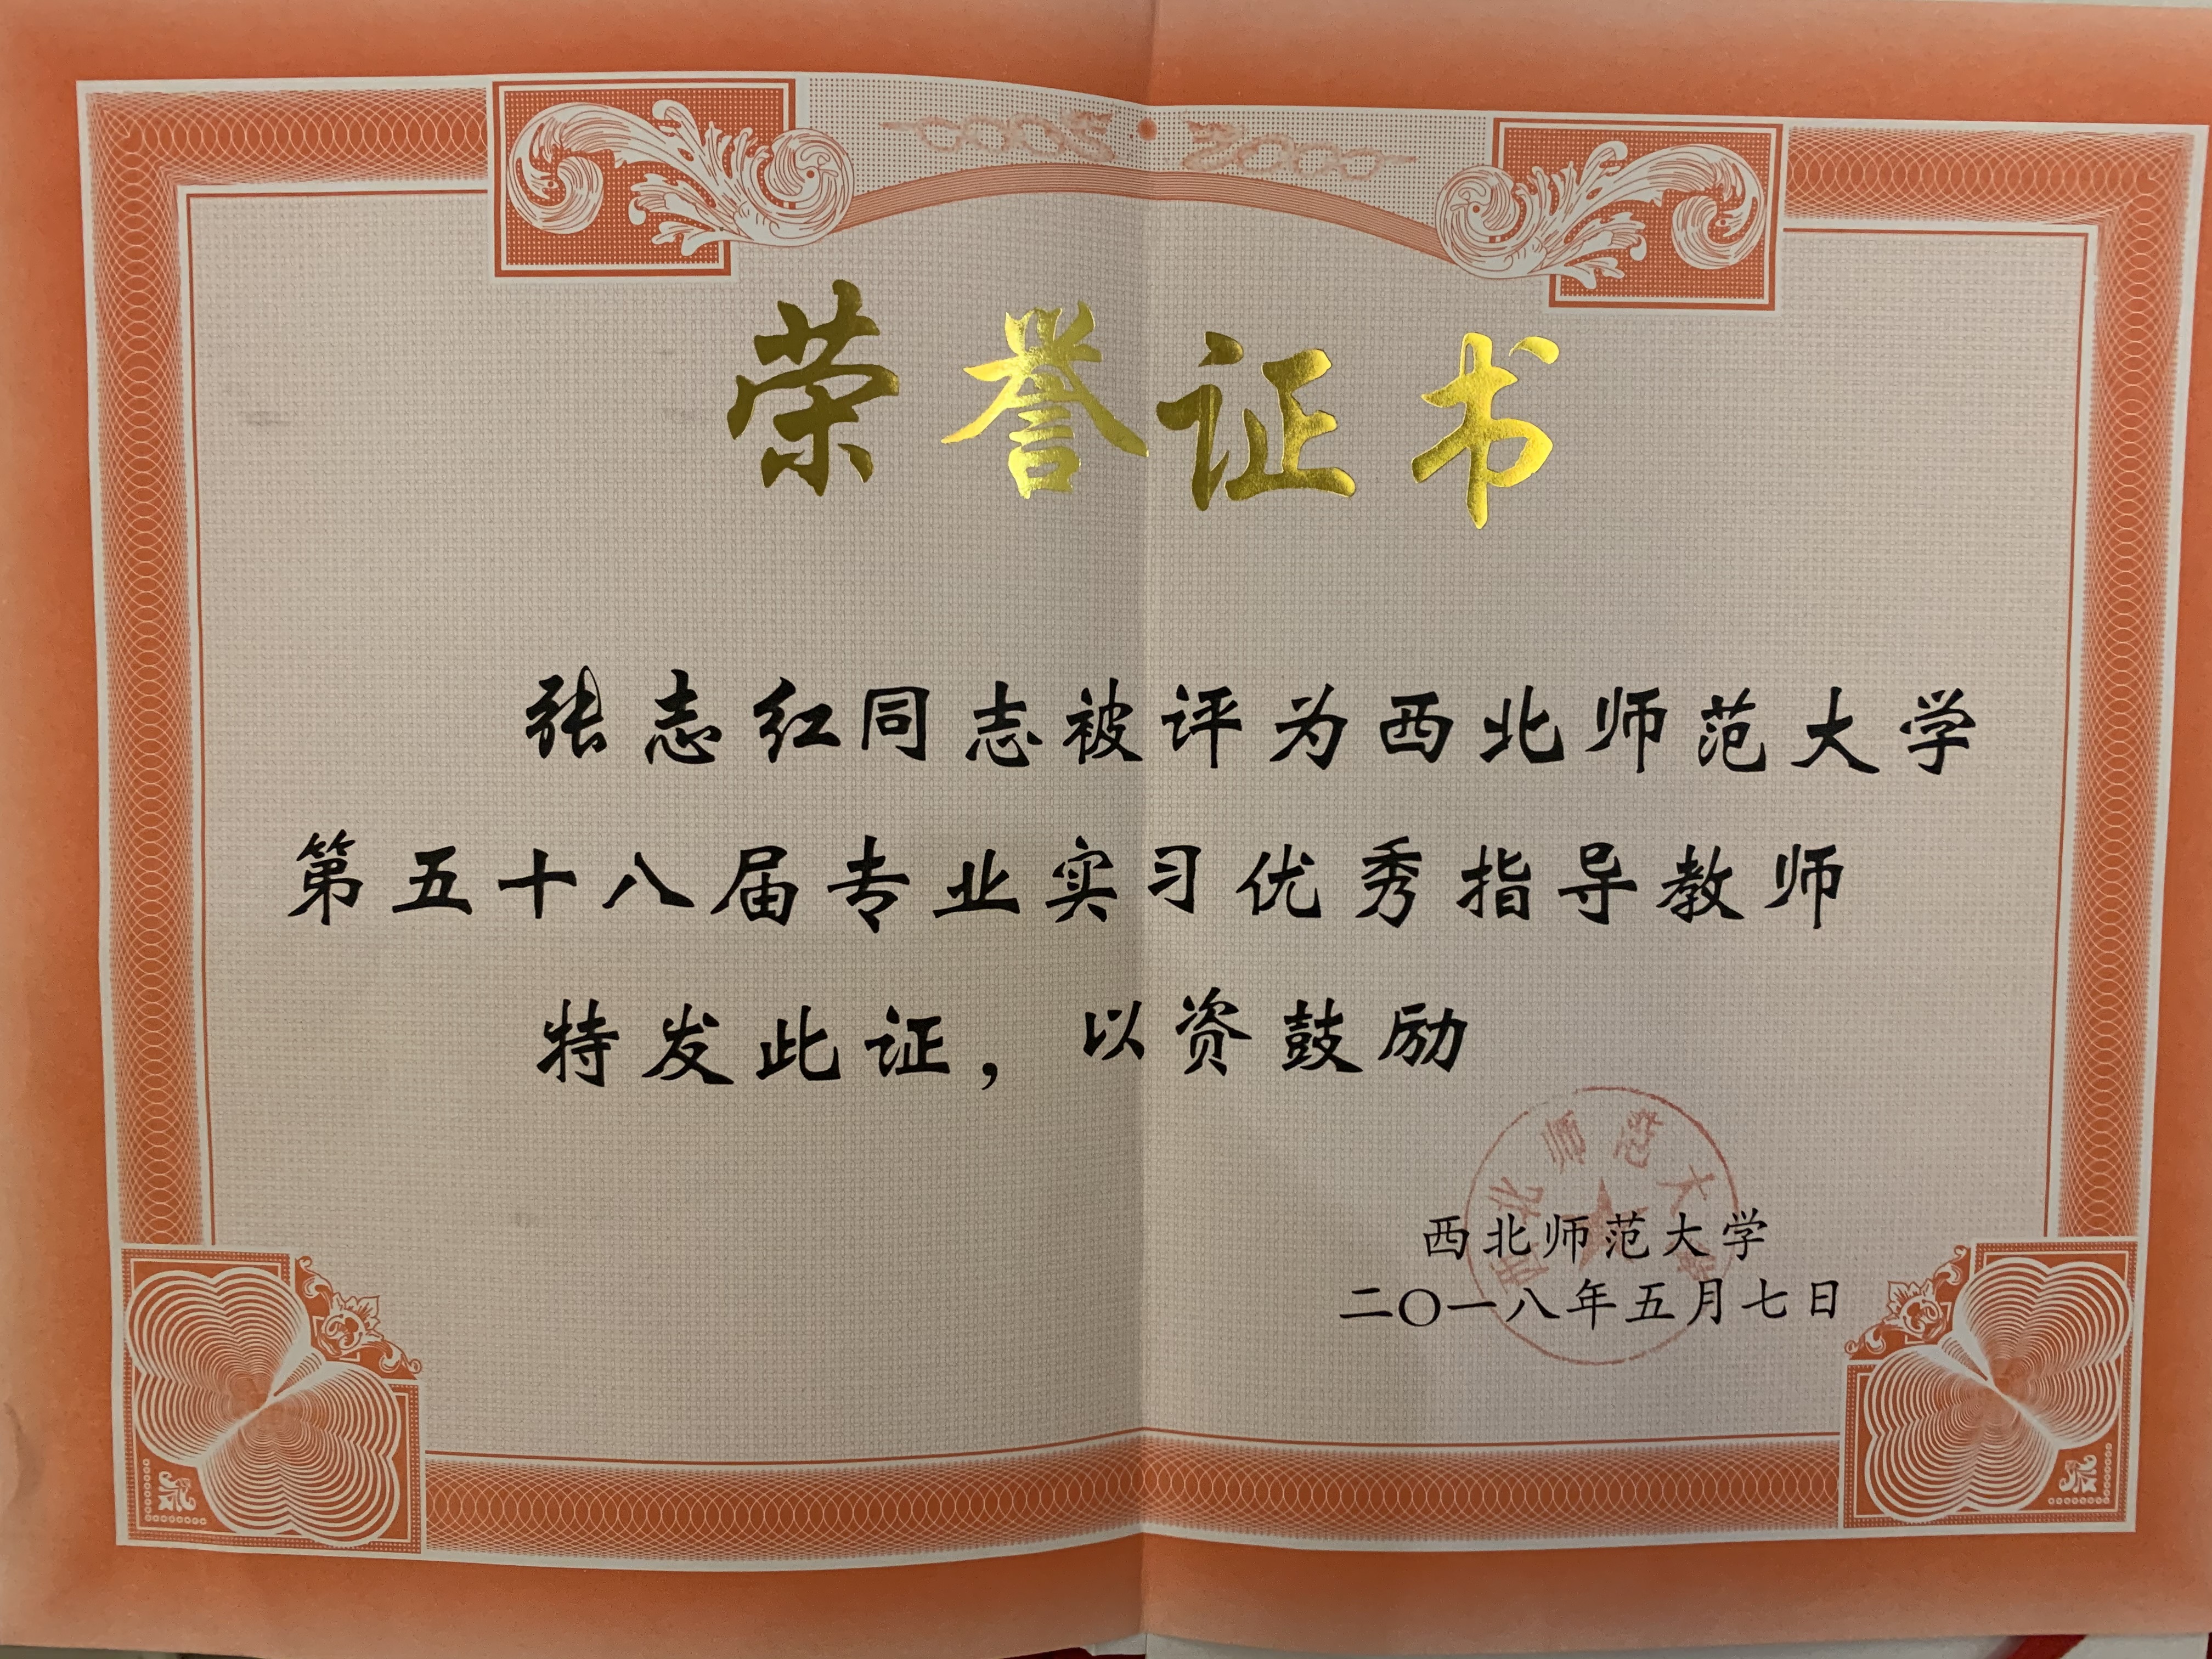 荣誉证书
张志红同志被评为西北师范大学
第五十八届专业实习优秀指导教师
特发此证，以资鼓励
西北师范大学
西北师范大学
二〇一八年五月七日